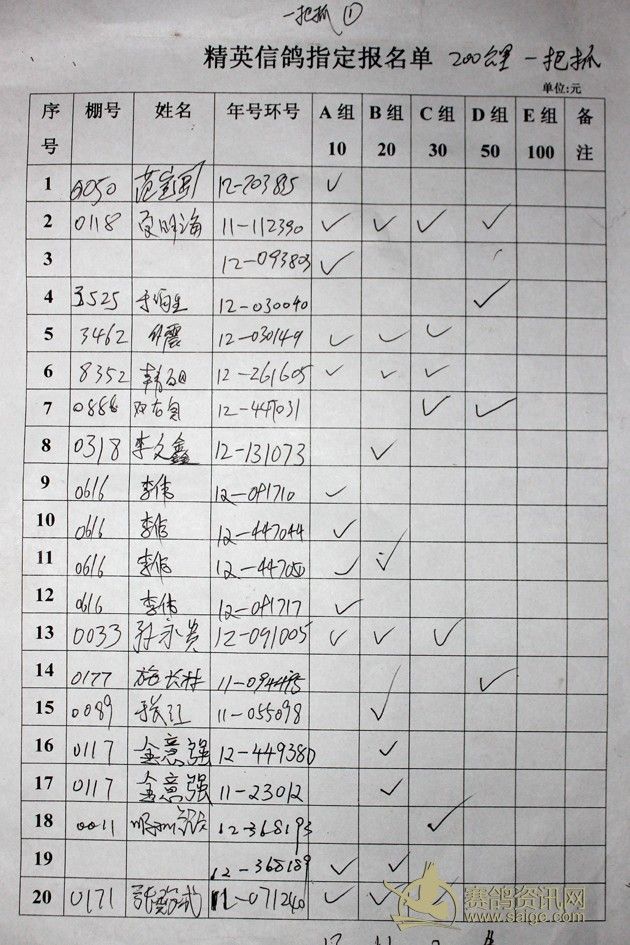 一把抓 ①
精英信鸽指定报名单 200公里 一把抓
单位:元
序号 棚号 姓名 年号环号 A组 10 B组 20 C组 30 D组 50 E组 100 备注
1 0050 12-703885 ✓
2 0118 11-112390 ✓ ✓ ✓ ✓
3 12-093803 ✓
4 3525 12-030040 ✓
5 3462 12-030149 ✓ ✓ ✓
6 8352 12-261605 ✓ ✓ ✓
7 0886 12-447031 ✓ ✓
8 0318 李文鑫 12-131073 ✓
9 0616 李伟 12-091710 ✓
10 0616 李伟 12-447044 ✓
11 0616 李伟 ✓ ✓
12 0616 李伟 12-091717 ✓
13 0033 孙永贵 12-091005 ✓ ✓ ✓
14 0177 ✓ ✓
15 0089 11-055098 ✓
16 0117 金意强 12-449380 ✓
17 0117 金意强 11-23012 ✓
18 0011 12-368193 ✓
19 12-368189 ✓ ✓
20 0171 11-071240 ✓ ✓ ✓ ✓
赛鸽资讯网
www.saige.com